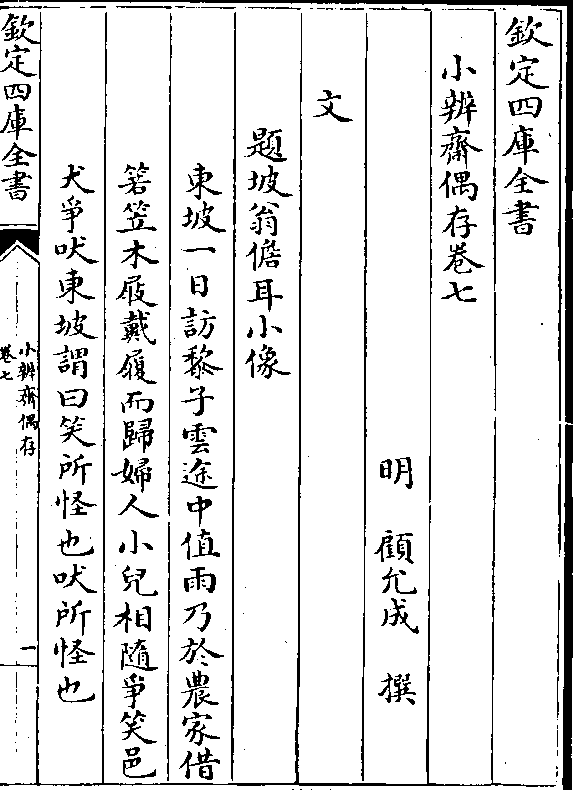 欽定四庫全書
小辨齋偶存卷七
明 顧允成 撰
文
題坡翁儋耳小像
東坡一日訪黎子雲途中值雨乃於農家借
箬笠木屐戴履而歸婦人小兒相隨爭笑邑
犬爭吠東坡謂曰笑所怪也吠所怪也
欽定四庫全書
小辨齋偶存
卷七
一